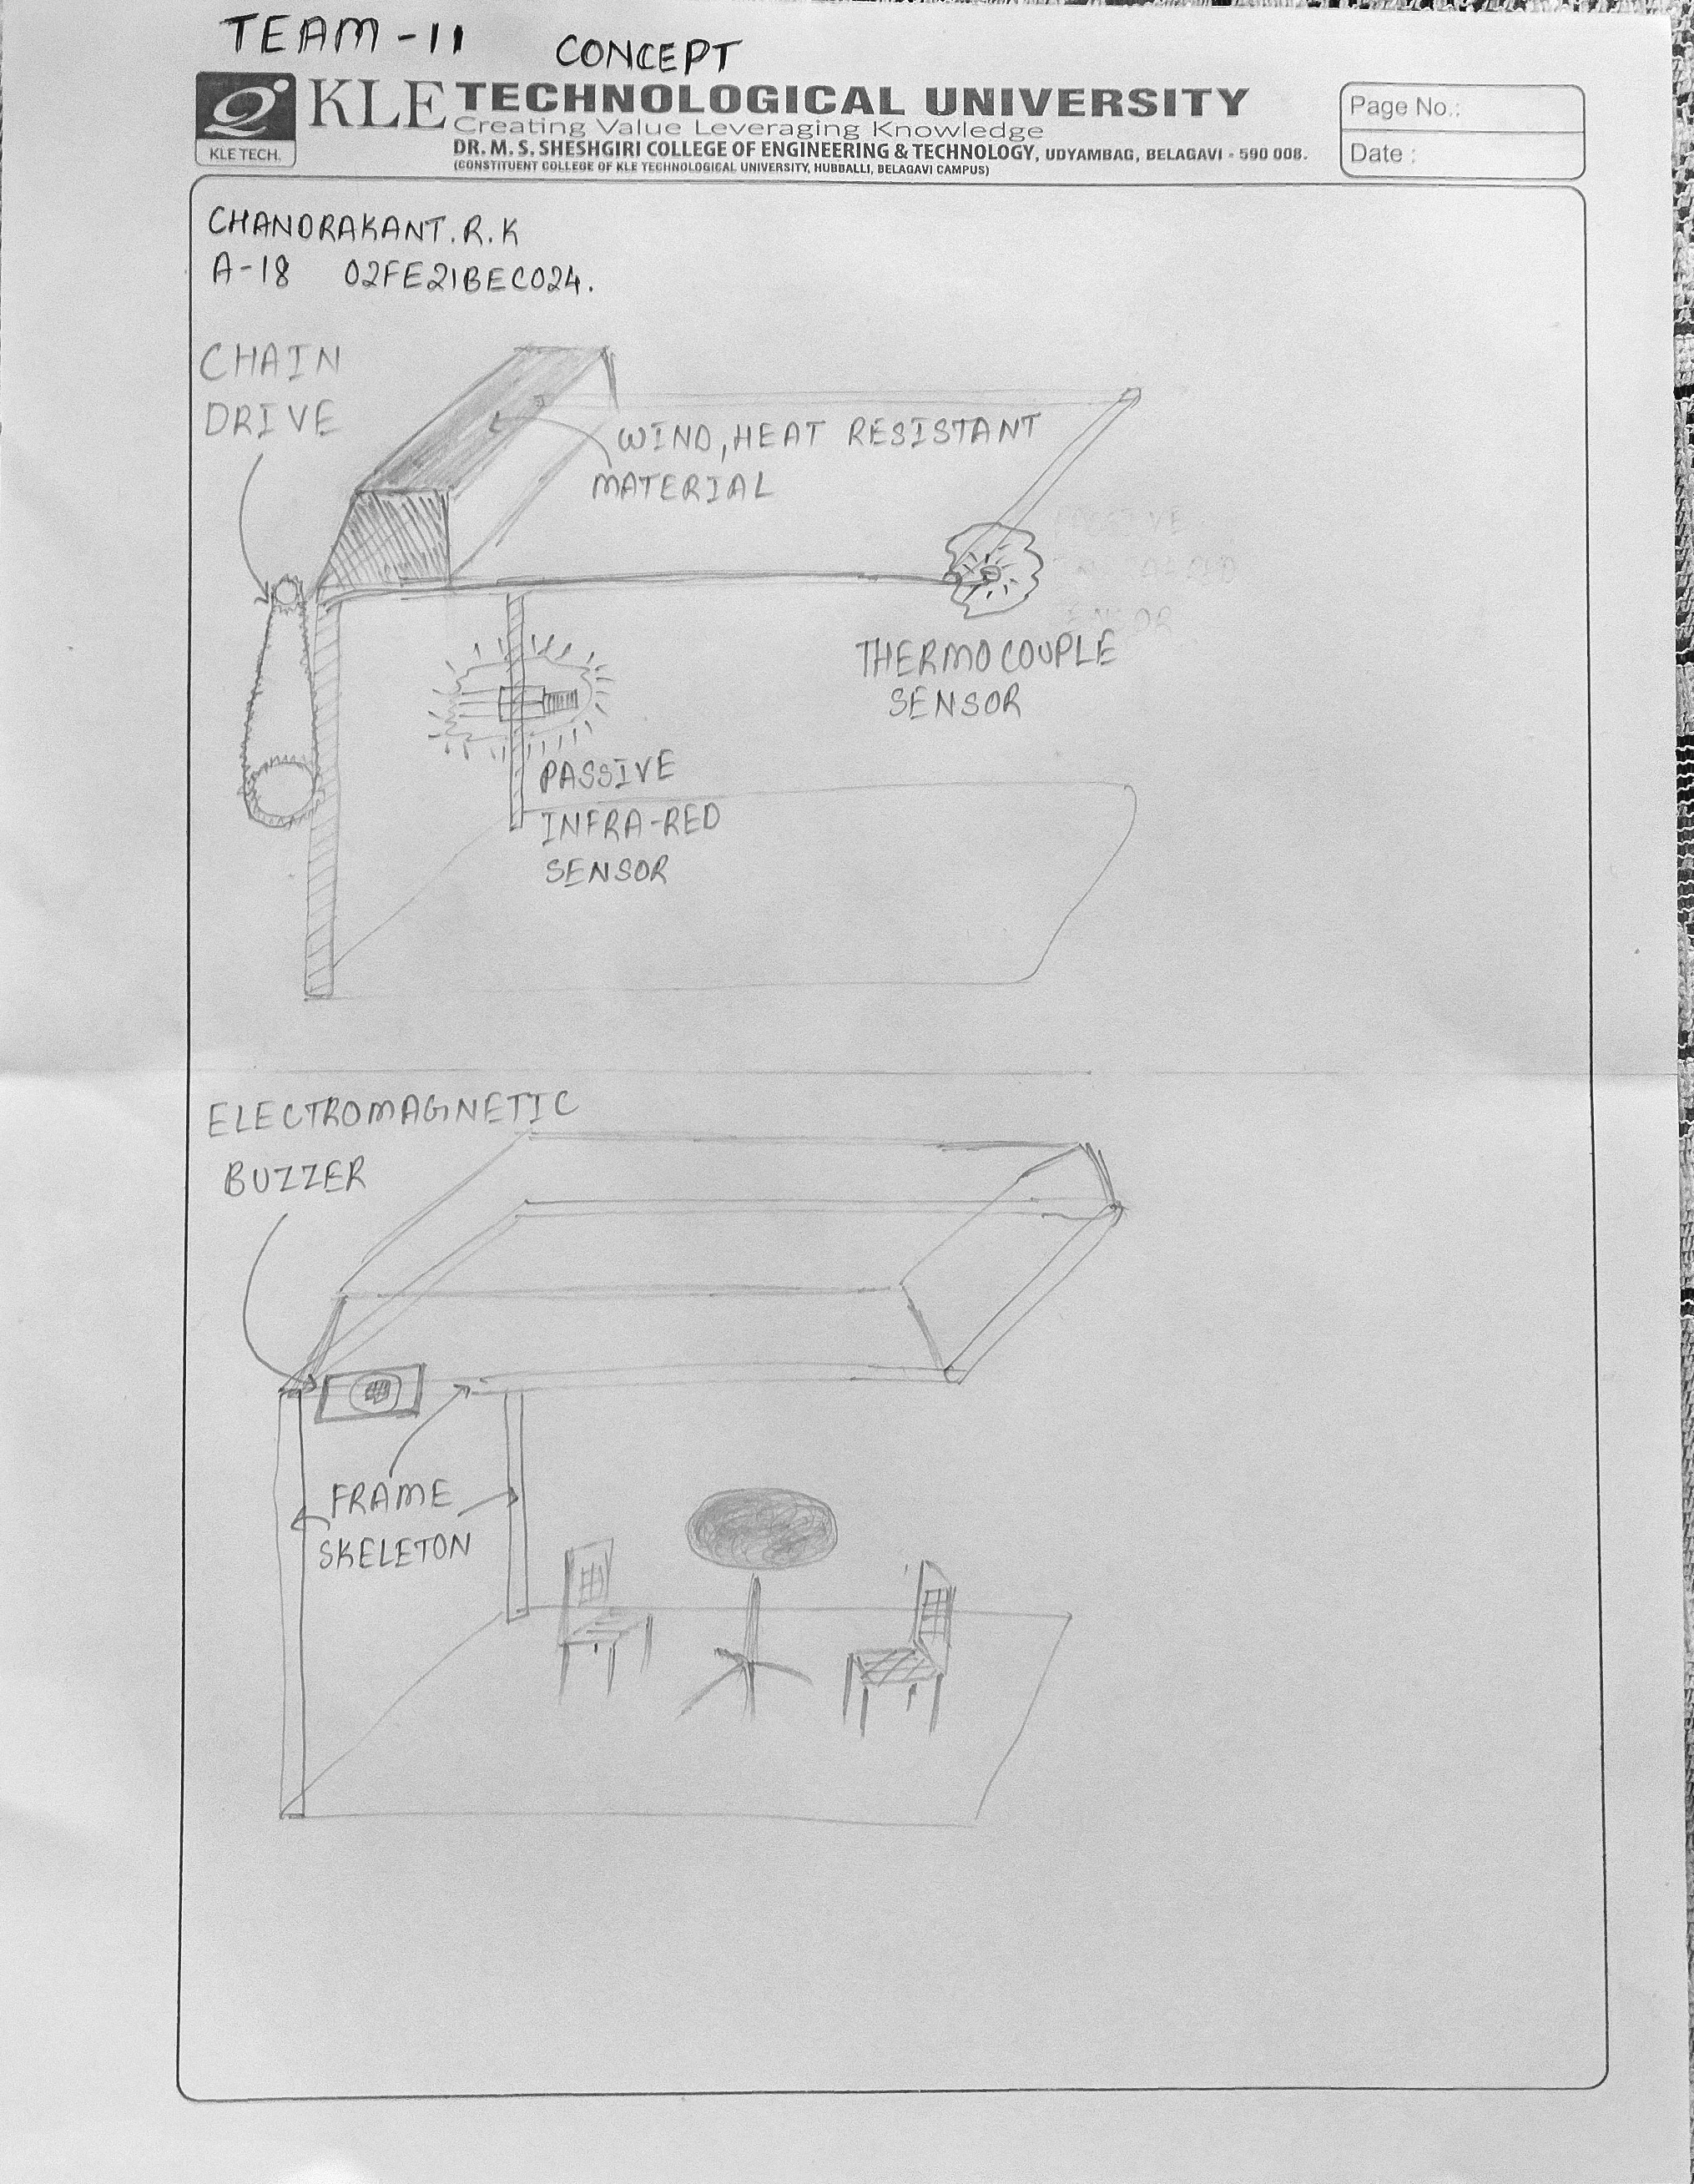 TEAM-11
CONCEPT
KLE TECH.
KLE TECHNOLOGICAL UNIVERSITY
Creating Value Leveraging Knowledge
DR. M. S. SHESHGIRI COLLEGE OF ENGINEERING & TECHNOLOGY, UDYAMBAG, BELAGAVI - 590 008.
(CONSTITUENT COLLEGE OF KLE TECHNOLOGICAL UNIVERSITY, HUBBALLI, BELAGAVI CAMPUS)
Page No.:
Date :
CHANDRAKANT.R.K
A-18 02FE21BEC024.
CHAIN
DRIVE
WIND, HEAT RESISTANT
MATERIAL
THERMOCOUPLE
SENSOR
PASSIVE
INFRA-RED
SENSOR
ELECTROMAGNETIC
BUZZER
FRAME
SKELETON